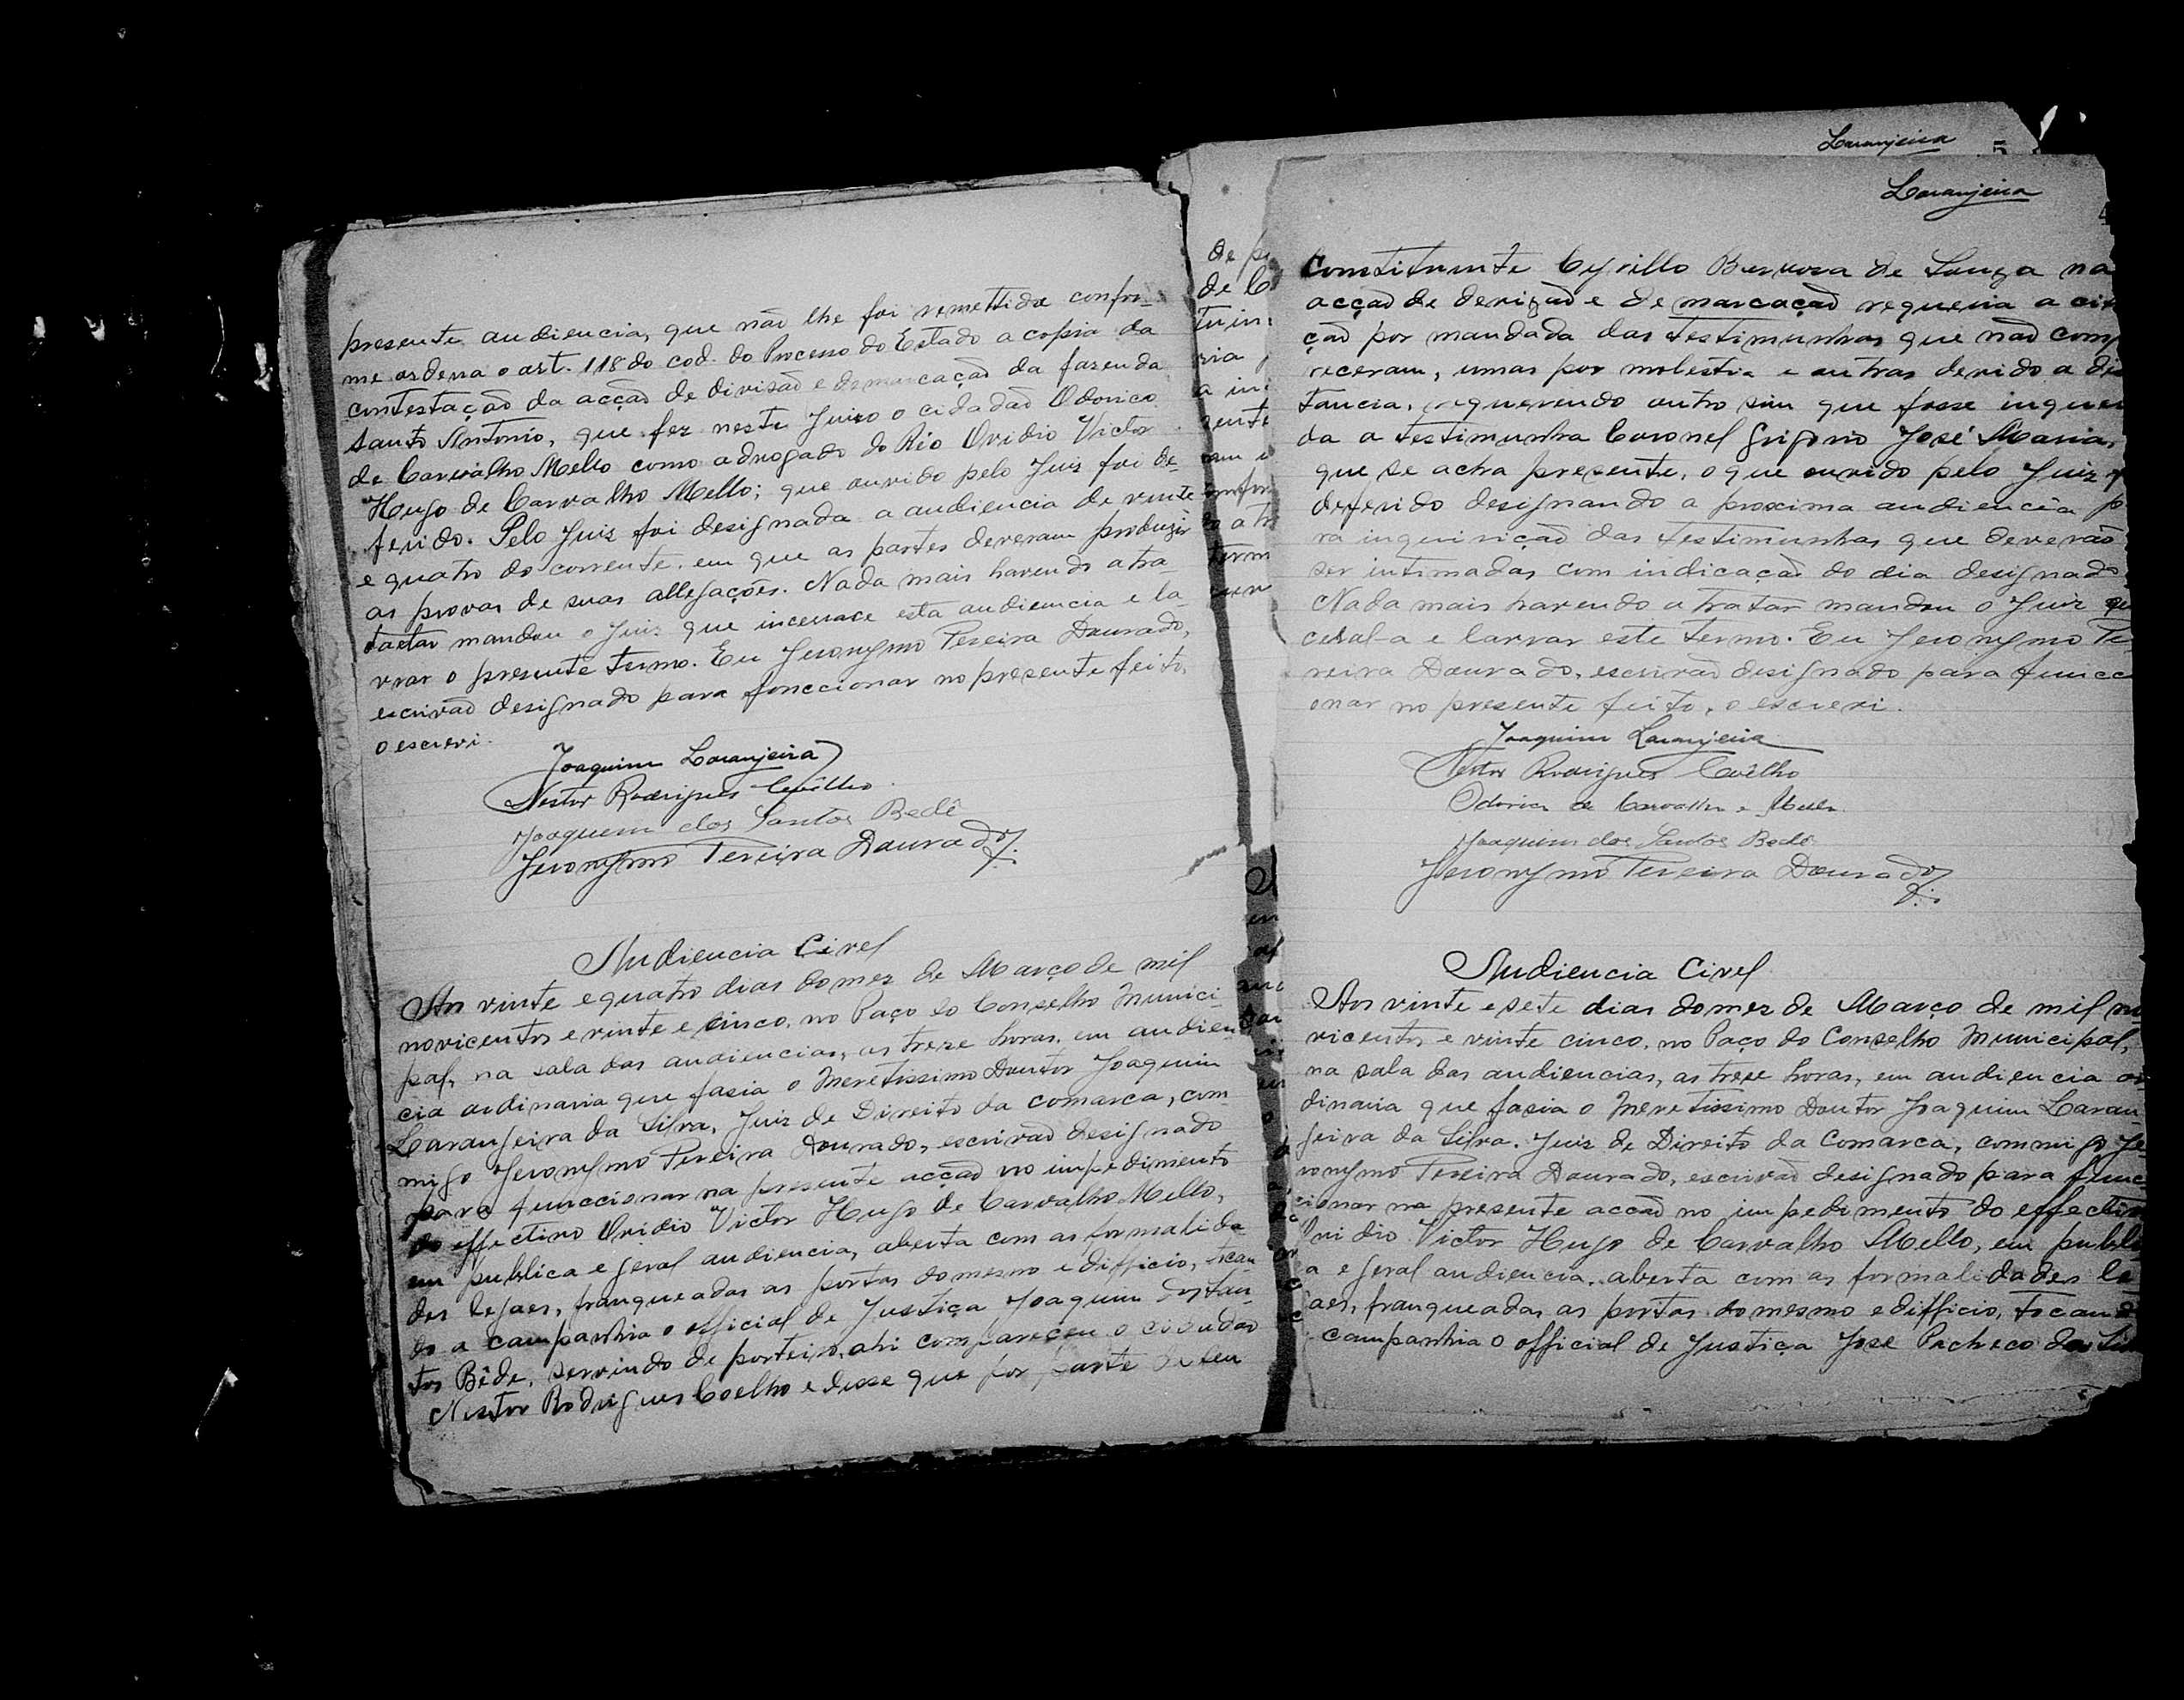 presente audiencia, que não lhe foi remettida confor-
me ordena o art. 118 do cod. do Processo do Estado a copia da
contestação da acção de divisão e demarcação da fazenda
Santo Antonio, que fez neste Juizo o cidadão Odorico
de Carvalho Mello como advogado do Réo Ovidio Victor
Hugo de Carvalho Mello; que ouvido pelo Juiz foi de-
ferido. Pelo Juiz foi designada a audiencia de vinte
e quatro do corrente, em que as partes deveram produzir
as provas de suas allegações. Nada mais havendo a tra-
tar mandou o Juiz que incerrace esta audiencia e la-
vrar o presente termo. Eu Jeronymo Pereira Dourado,
escrivão designado para funccionar no presente feito,
o escrevi.
Joaquim Laranjeira
Nestor Rodrigues Coêlho
Joaquem dos Santos Bedê
Jeronymo Pereira Dourado
Audiencia Civel
Aos vinte e quatro dias do mez de Março de mil
novicentos e vinte e cinco, no Paço do Conselho Munici-
pal, na sala das audiencias, as treze horas, em audien-
cia ordinaria que fasia o Meretissimo Doutor Joaquim
Laranjeira da Silva, Juiz de Direito da comarca, com-
migo Jeronymo Pereira Dourado, escrivão designado
para funccionar na presente acção no impedimento
do effectivo Ovidio Victor Hugo de Carvalho Mello,
em publica e geral audiencia, aberta com as formalida
des legaes, franqueadas as portas do mesmo edifficio, tocan
do a campanhia o official de Justiça Joaquim dos San-
tos Bêde, servindo de porteiro, ahi compareceu o cidadão
Nestor Rodrigues Coelho e disse que por parte de seu
de
de C
ria
Laranjeira
5
Laranjeira
Constituinte Cyrillo Barbosa de Souza na
acção de devizão e demarcação requeria a
ção por mandada das testimunhas que não com
receram, umas por molestia e outras devido a dis
tancia, requerendo outro sim que fosse inquer
da a testimunha Coronel Grigorio José Maria,
que se acha presente, o que ouvido pelo Juiz
deferido designando a proxima audiencia p
ra inquirição das testimunhas que deverão
ser intimadas com indicação do dia designado
Nada mais havendo a tratar mandou o Juiz
cerral-a e lavrar este termo. Eu Jeronymo Pe
reira Dourado, escrivão designado para funcc
onar no presente feito, o escrevi.
Joaquim Laranjeira
Nestor Rodrigues Coêlho
Odorico de Carvalho e Mello
Joaquim dos Santos Bedê
Jeronymo Pereira Dourado
Audiencia Civel
Aos vinte e sete dias do mez de Março de mil no
vicentos e vinte cinco, no Paço do Conselho Municipal,
na sala das audiencias, as treze horas, em audiencia or
dinaria que fasia o Meretissimo Doutor Joaquim Laran-
jeira da Silva, Juiz de Direito da Comarca, commigo Je-
ronymo Pereira Dourado, escrivão designado para func-
cionar na presente accão no impedimento do effectivo
Ovidio Victor Hugo de Carvalho Mello, em publi
a e geral audiencia, aberta com as formalidades le
gaes, franqueadas as portas do mesmo edifficio, tocand
campanhia o official de Justiça José Pacheco da